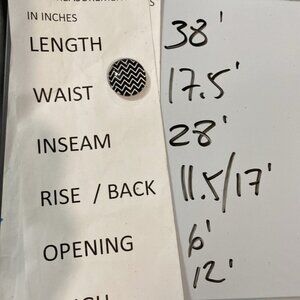 IN INCHES
LENGTH 38'
WAIST 17.5'
INSEAM 28'
RISE / BACK 11.5/17'
OPENING 6'
12'